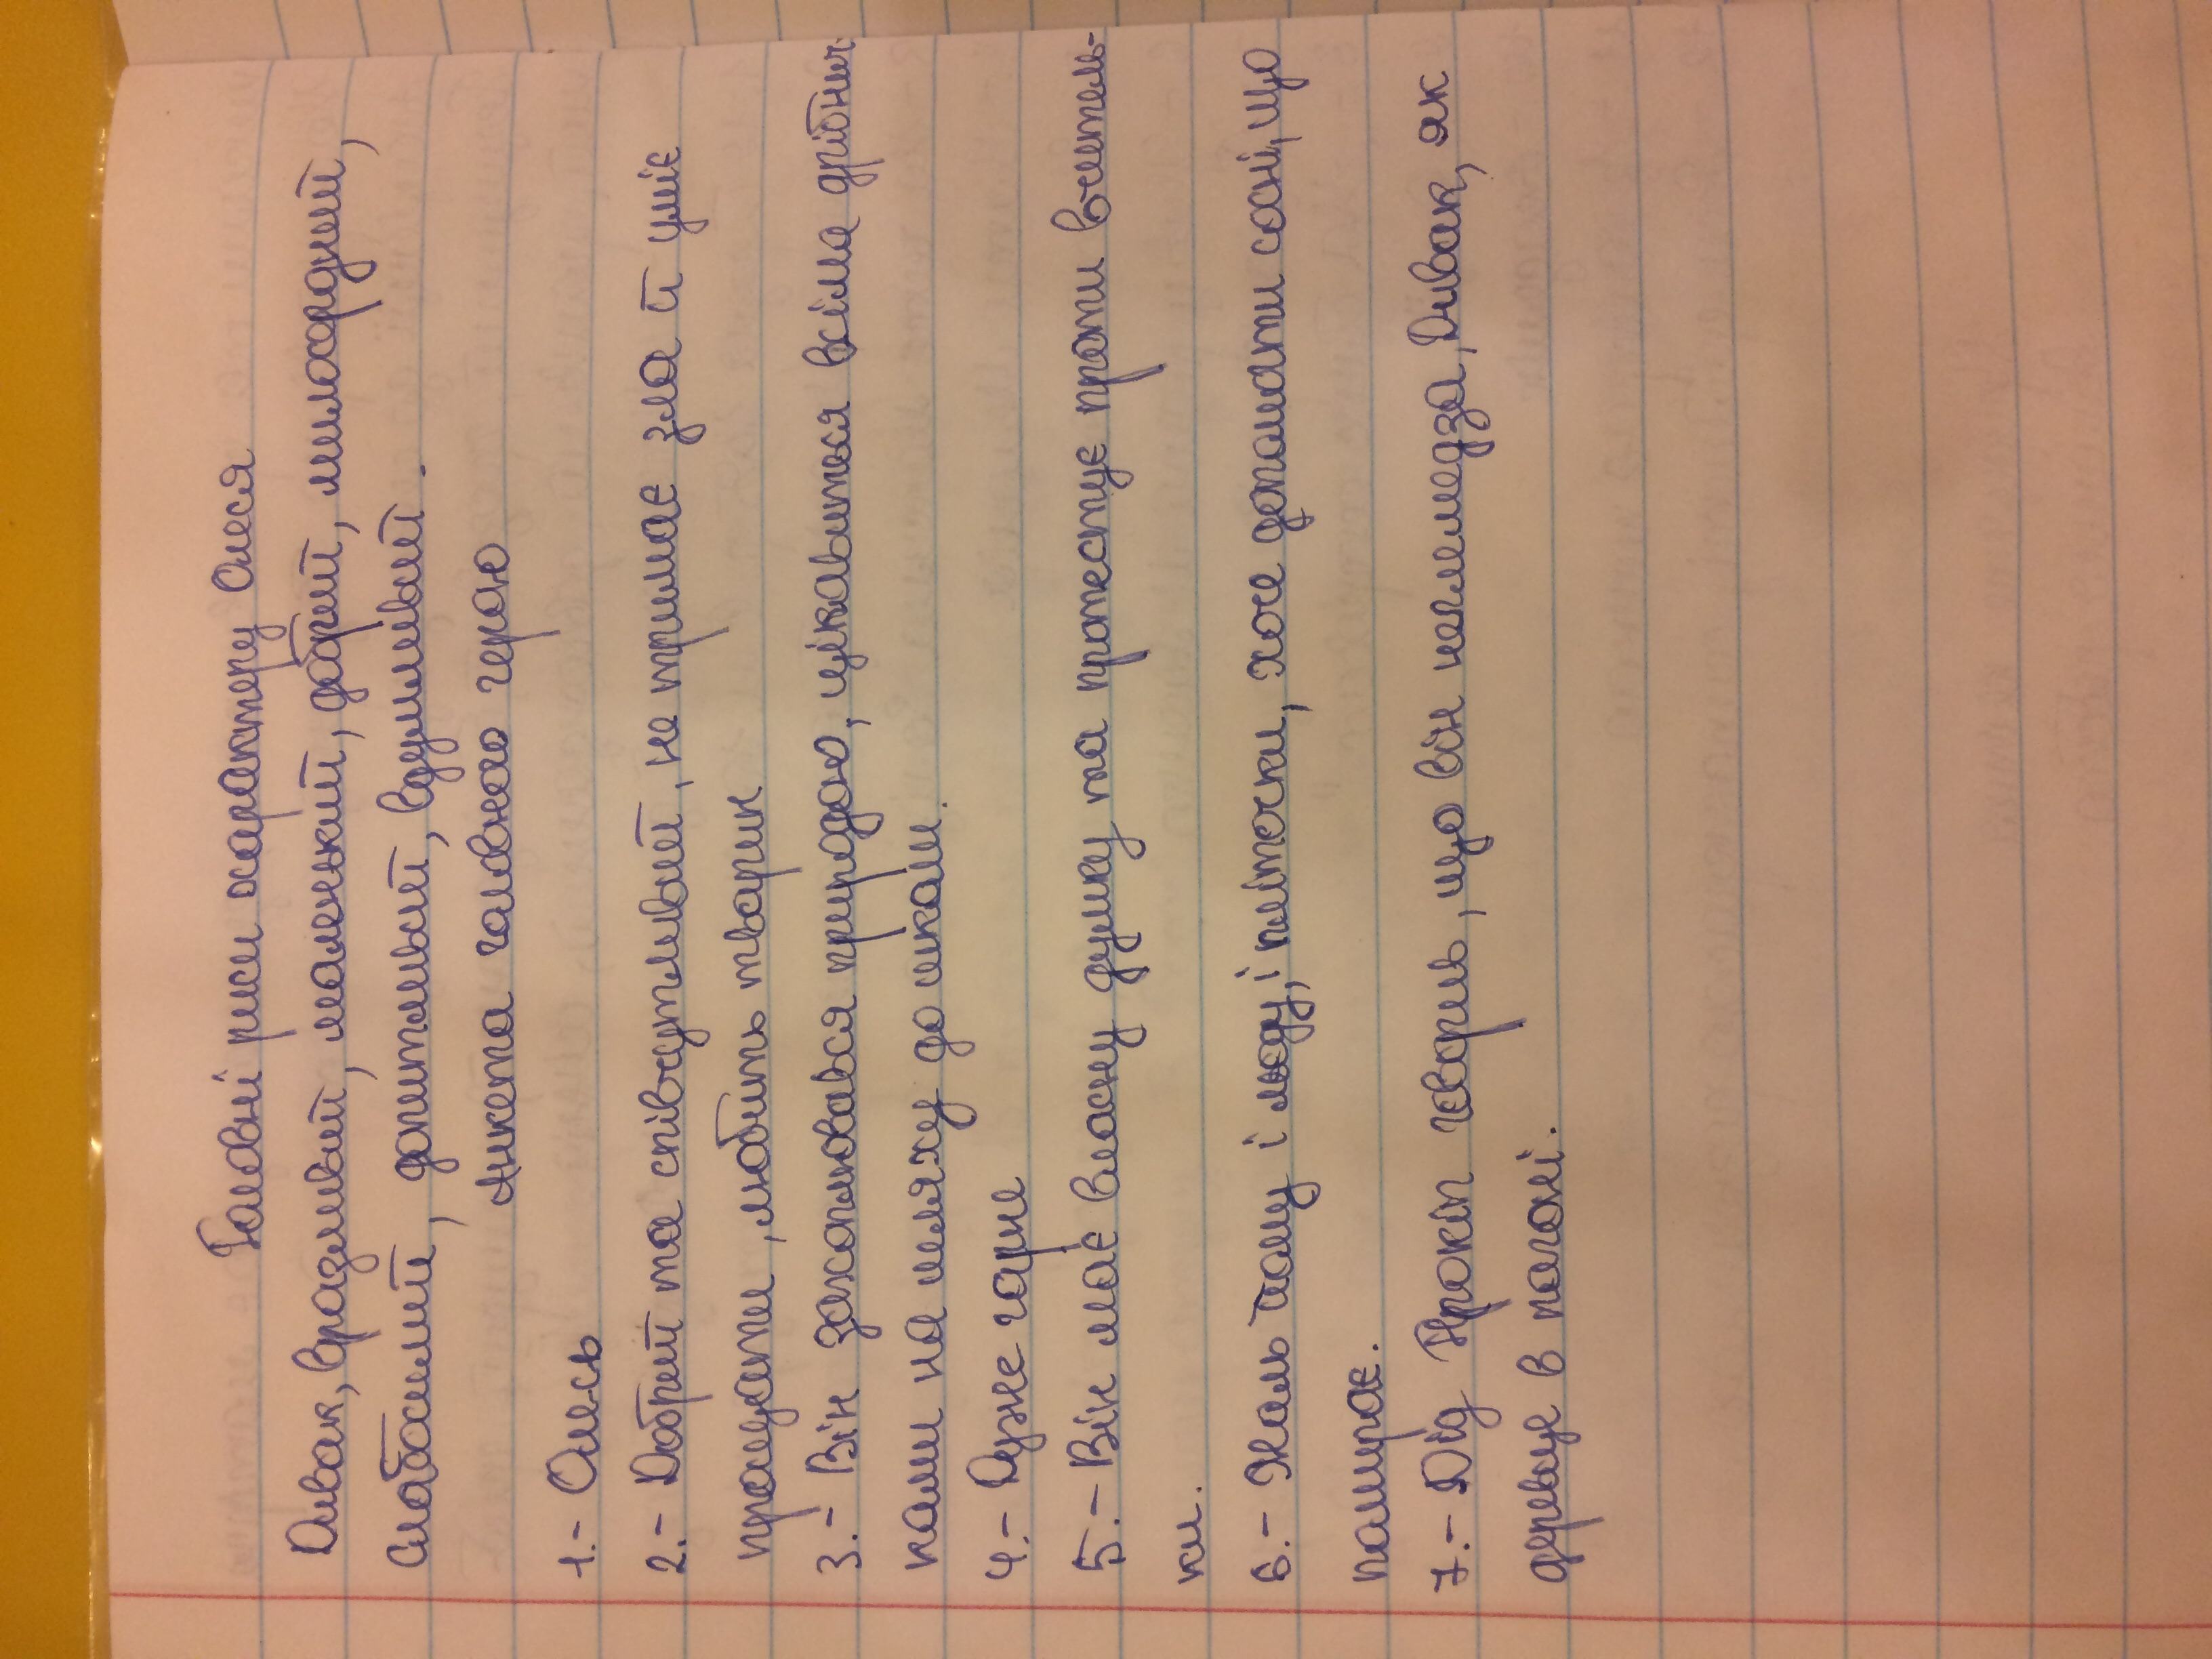 Головні риси характеру Олеся
Дивак, вразливий, маленький, добрий, милосердний,
слабосилий, допитливий, вдумливий.
Анкета головного герою
1.- Олесь
2.- Добрий та співчутливий, не тримає зла й уміє
прощати, любить тварин
3.- Він захоплювався природою, цікавиться всіма дрібнич-
ками на шляху до школи.
4.- Дуже гарне
5.- Він має власну думку та протестує проти вчитель-
ки.
6.- Жаль йому і льоду, і пліточки, хоче допомогти сосні, що
помирає.
7.- Дід Прокіп говорив, що він нетямедза, Дивак, як
деревце в пагоні.